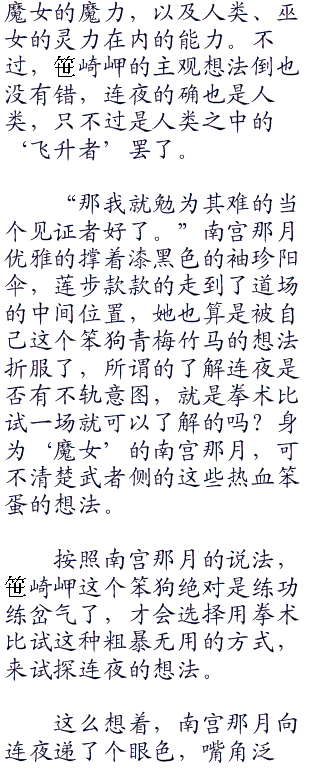 魔女的魔力，以及人类、巫
女的灵力在内的能力。不
过，笹崎岬的主观想法倒也
没有错，连夜的确也是人
类，只不过是人类之中的
‘飞升者’罢了。
“那我就勉为其难的当
个见证者好了。”南宫那月
优雅的撑着漆黑色的袖珍阳
伞，莲步款款的走到了道场
的中间位置，她也算是被自
己这个笨狗青梅竹马的想法
折服了，所谓的了解连夜是
否有不轨意图，就是拳术比
试一场就可以了解的吗？身
为‘魔女’的南宫那月，可
不清楚武者侧的这些热血笨
蛋的想法。
按照南宫那月的说法，
笹崎岬这个笨狗绝对是练功
练岔气了，才会选择用拳术
比试这种粗暴无用的方式，
来试探连夜的想法。
这么想着，南宫那月向
连夜递了个眼色，嘴角泛